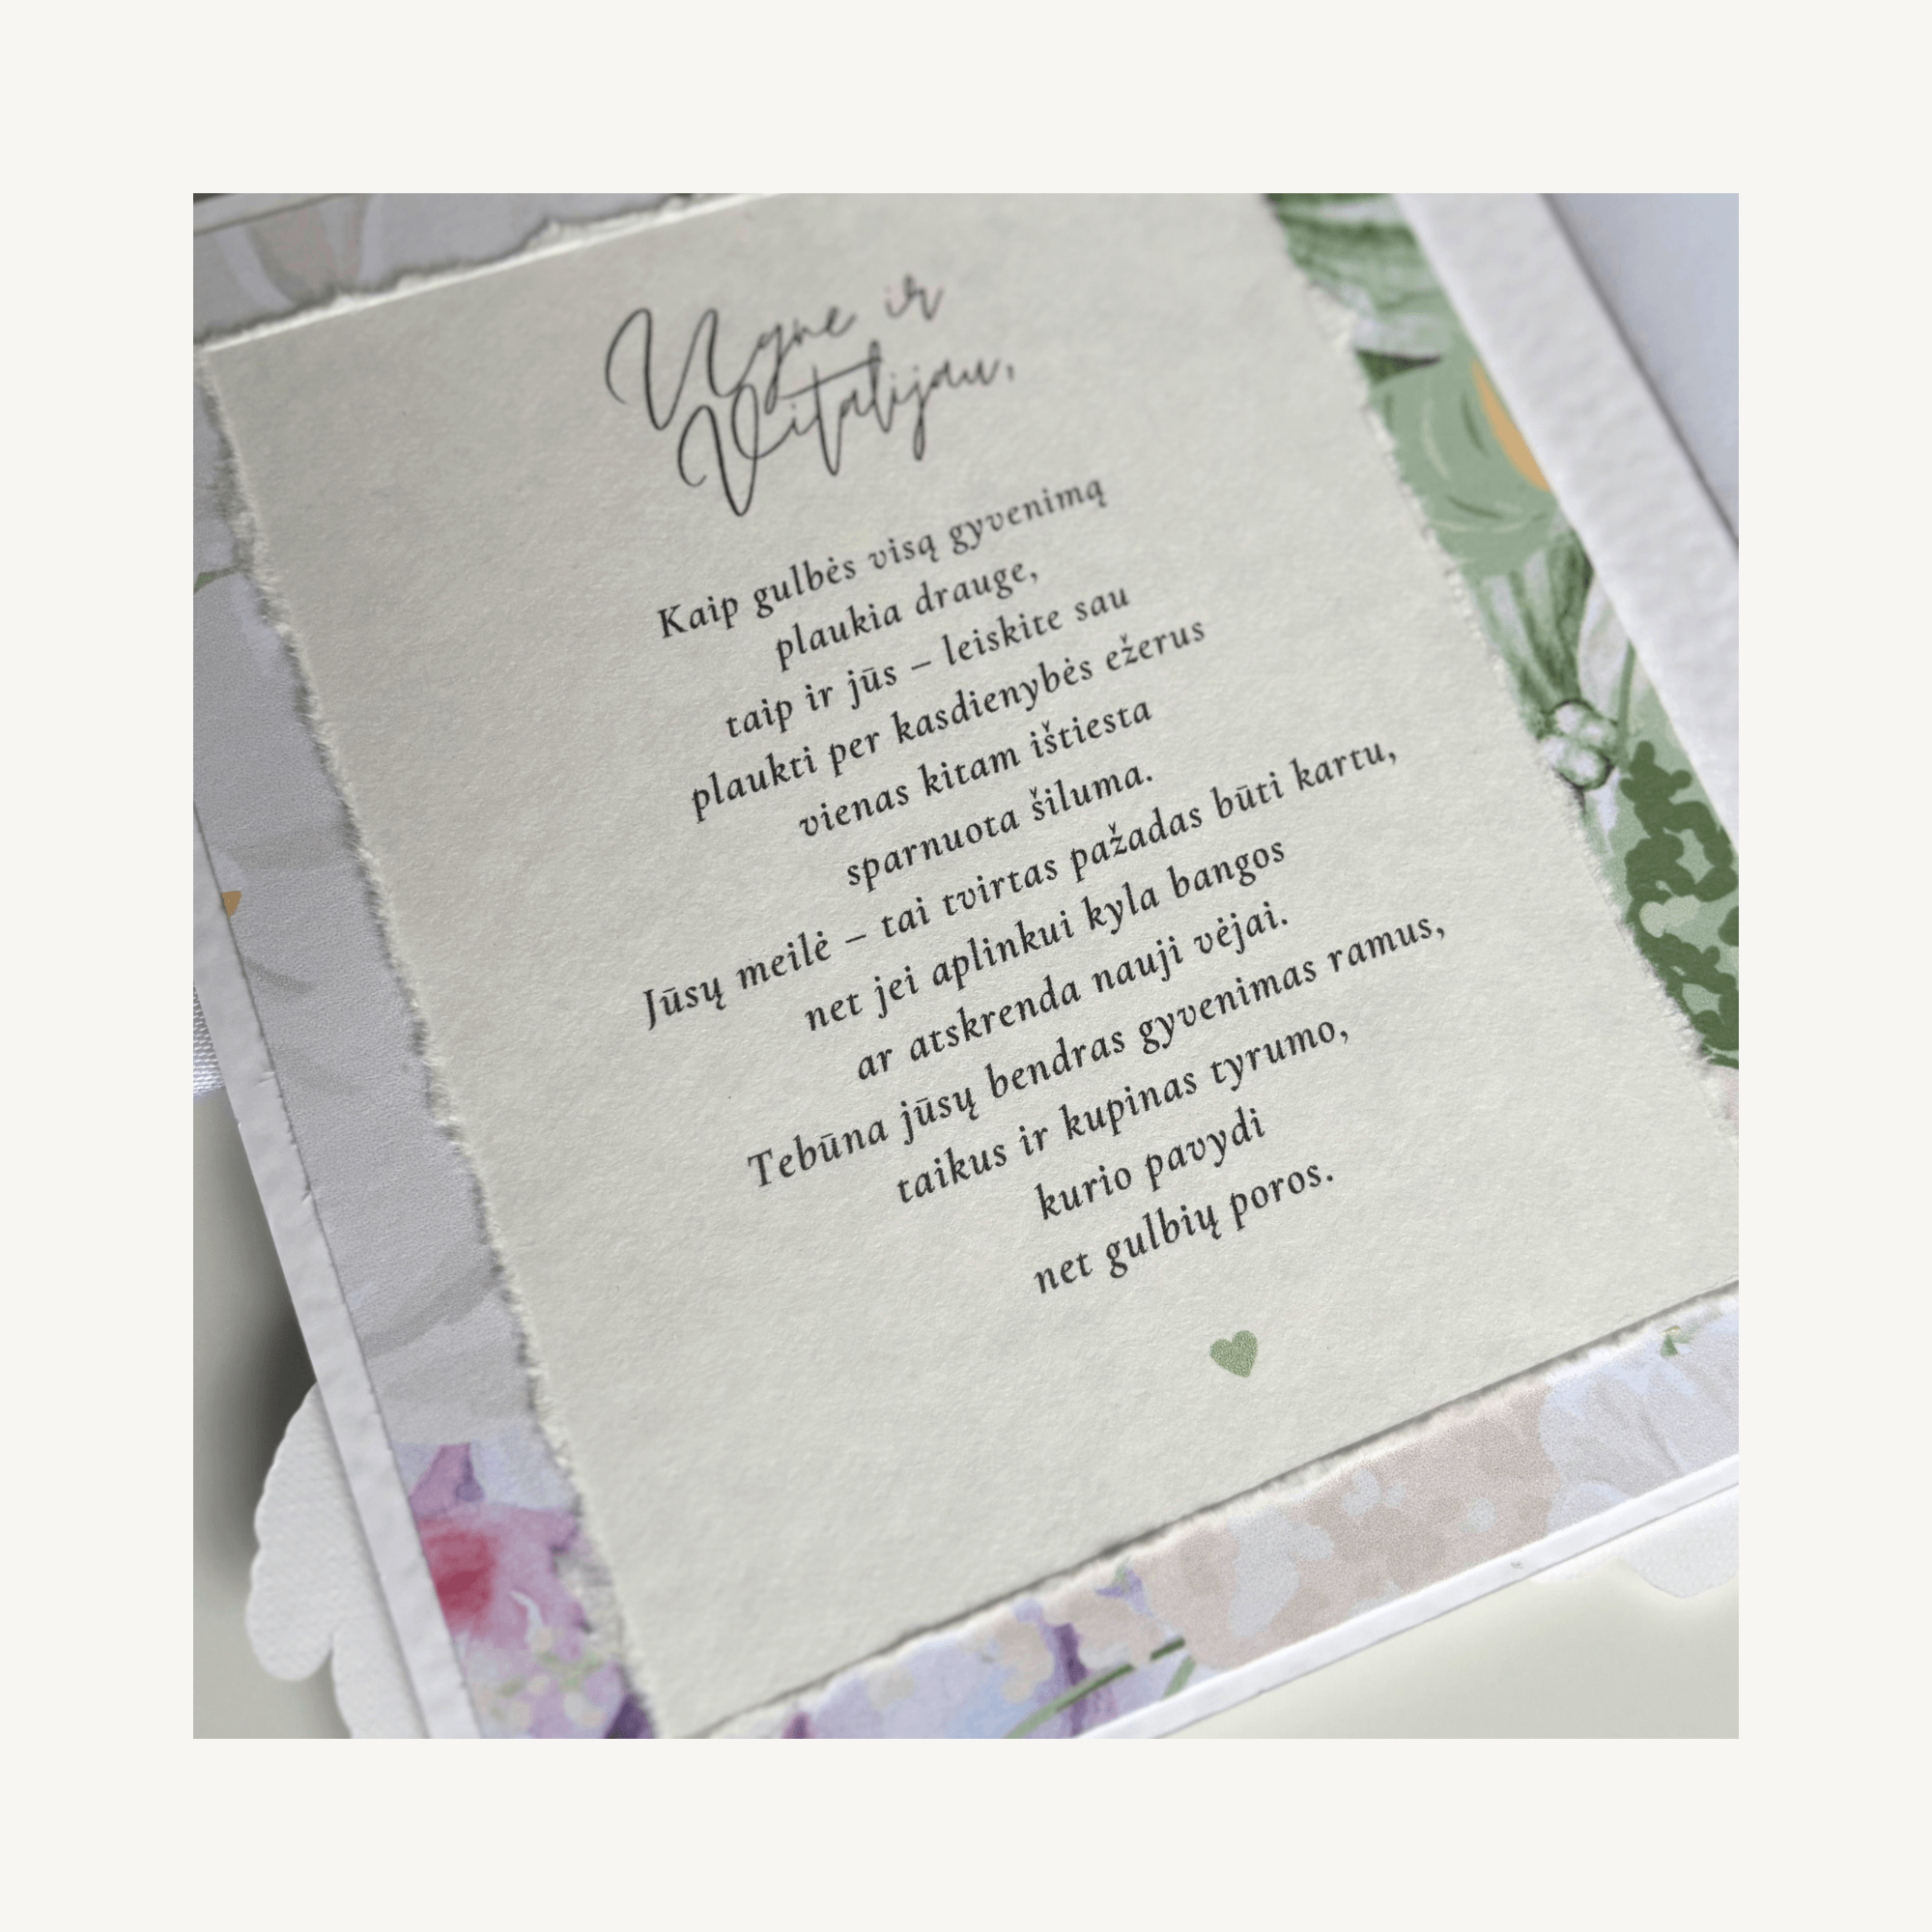 Ugne ir
Vitalijau,
Kaip gulbės visą gyvenimą
plaukia drauge,
taip ir jūs – leiskite sau
plaukti per kasdienybės ežerus
vienas kitam ištiesta
sparnuota šiluma.
Jūsų meilė – tai tvirtas pažadas būti kartu,
net jei aplinkui kyla bangos
ar atskrenda nauji vėjai.
Tebūna jūsų bendras gyvenimas ramus,
taikus ir kupinas tyrumo,
kurio pavydi
net gulbių poros.